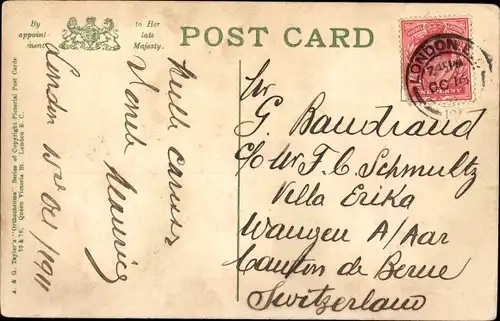 By
appoint-
ment
to Her
late
Majesty.
POST CARD
A. & G. Taylor's "Orthochrome" Series of Copyright Pictorial Post Cards
70 & 76, Queen Victoria St. London E. C.
London Oct/1911
Mille
LONDON.E.
7.45PM
OC 16
NE PENNY
Mr
G. Baudraud
c/o Mr F. C. Schmultz
Villa Erika
Wangen A/Aar
Canton de Berne
Switzerland